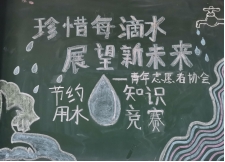 珍惜每滴水
展望新未来
——青年志愿者协会
节约 知识
用水 竞赛